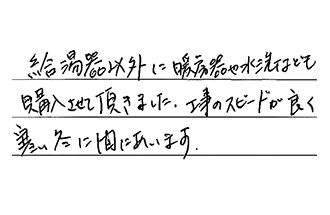 給湯器以外に暖房器や水洗なども
購入させて頂きました。工事のスピードが良く
寒い冬に間にあいます。